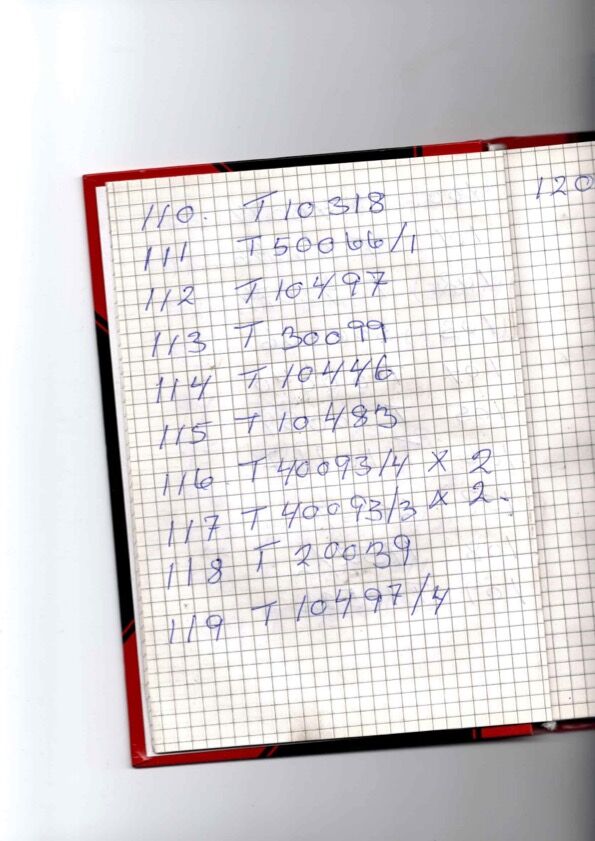 110. T 10318
111 T 50066/1
112 T 10497
113 T 30099
114 T 10446
115 T 10483
116. T 40093/4 x 2
117 T 40093/3 x 2.
118 T 20039
119 T 10497/4
120